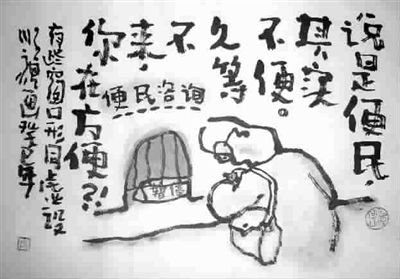 说是便民，
其实
不便。
久等
不
来，
你在方便?!
便民咨询
暂停
有些窗口形同虚设